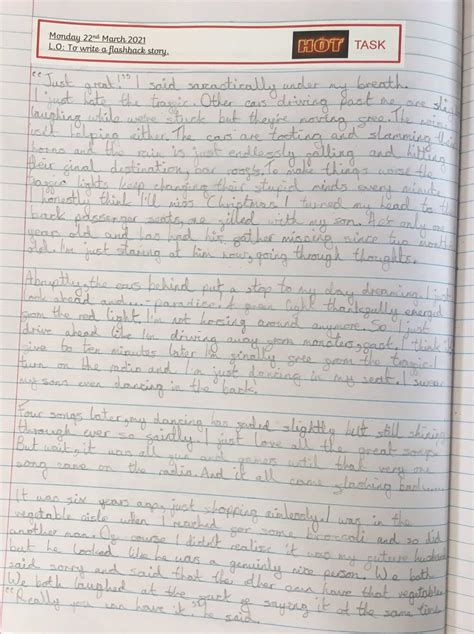 Monday 22nd March 2021
L.O: To write a flashback story.
HOT TASK
"Just great!" I said sarcastically under my breath.
I just hate the traffic. Other cars driving past me, are
laughing while we're stuck but they're moving free. The
isn't helping either. The cars are tooting and slamming
horns and the rain is just endlessly falling and hitting
their final destination, car roofs. To make things worse the
lights, keep changing their stupid minds every minute
honestly think I'll miss Christmas! I turned my head to the
back passenger seats, are filled with my son. At only one
year old and has had his father missing since two months
old. I'm just staring at him now, going through thoughts.
Abruptly, the cars behind put a stop to my day dreaming. I just
look ahead and... paradise. A green light thankfully emerged
from the red light. I'm not messing around anymore. So I just
drive ahead like I'm driving away from monsters, fast. I think
five to ten minutes later I'm finally free from the traffic. I
turn on the radio and I'm just dancing in my seat. I swear
my son's even dancing in the back.
Four songs later, my dancing has faded slightly but still shining
through ever so faintly. I just love all the great songs.
But wait, it was all fun and games until that very one
song came on the radio. And it all came flashing back...
It was six years ago, just shopping aimlessly. I was in the
vegetable aisle when I reached for some broccoli and so did
another man. Of course I didn't realise it was my future husband
but he looked like he was a genuinely nice person. We both
said sorry and said that the other can have that vegetable.
We both laughed at the of saying it at the same time.
"Really you can have it," he said.